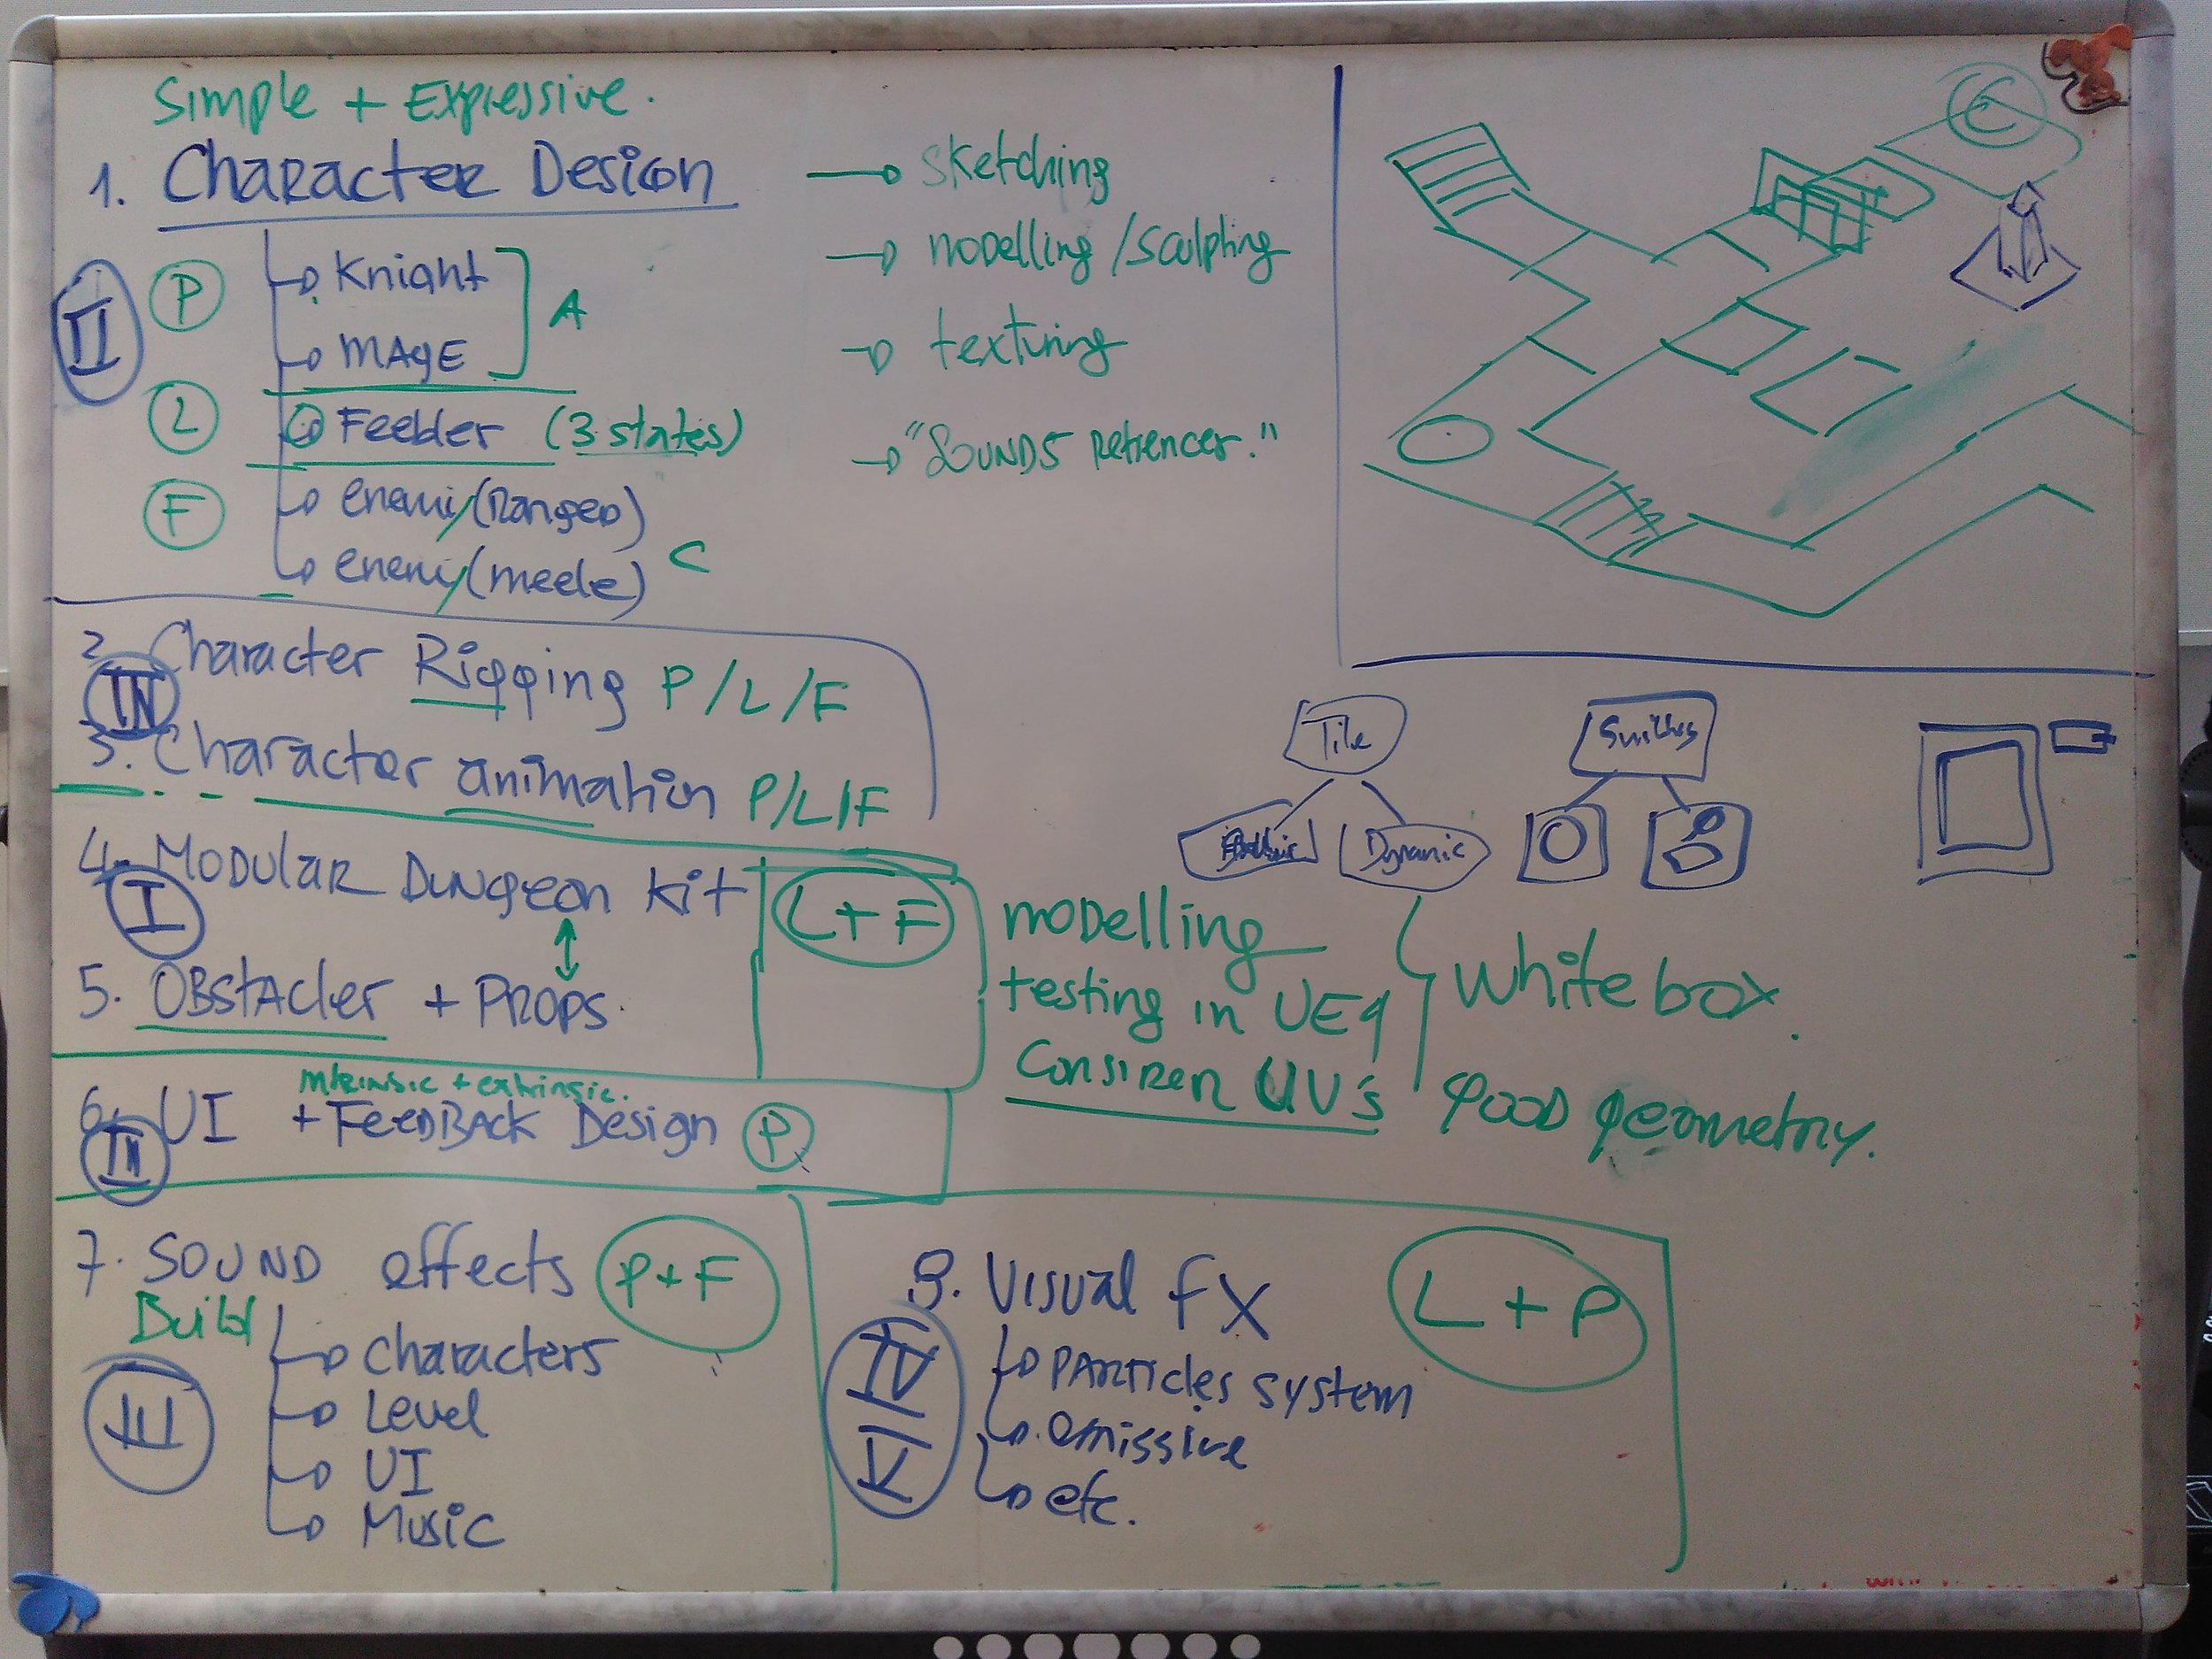 Simple + Expressive.
1. Character Design
II
P
Knight
Mage
A
L
Feeder (3 states)
F
enemy (Ranged)
enemy (meele)
C
→ sketching
→ modelling / sculpting
→ texturing
C
2. Character Rigging P/L/F
IV
3. Character animation P/L/F
4. Modular Dungeon Kit
I
L + F
5. Obstacles + Props.
modelling
testing in UE4
UV's
White box.
good geometry.
Tile
Dynamic
intrinsic + extrinsic.
6. UI + FeedBack Design P
7. Sound effects P + F
Build
III
Characters
Level
UI
Music
8. Visual FX L + P
IV
V
Particles system
emissive
etc.